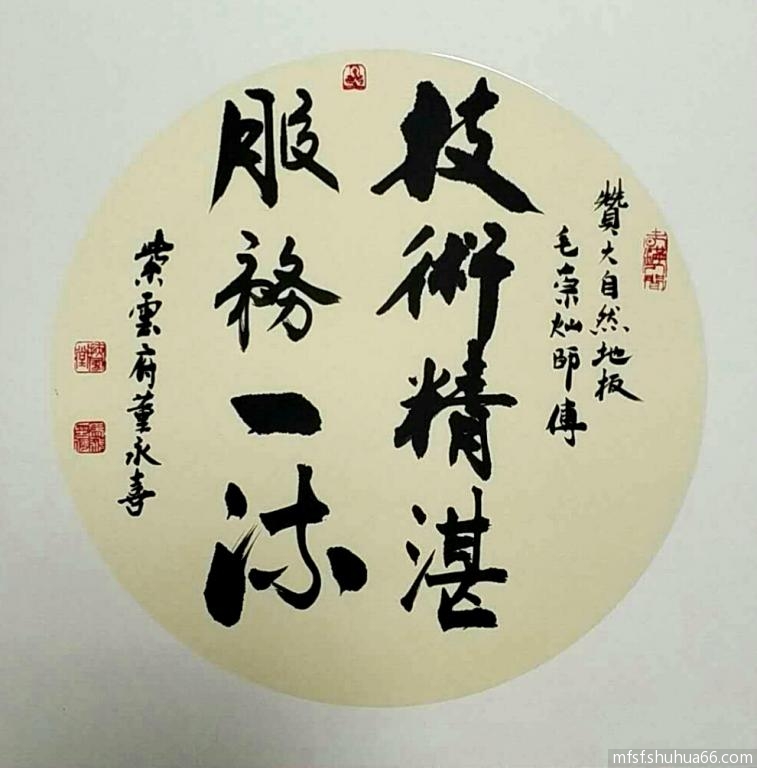 贊大自然地板
毛崇灿師傅
技術精湛
服務一流
紫雲府董永喜
mfsf.shuhua66.com